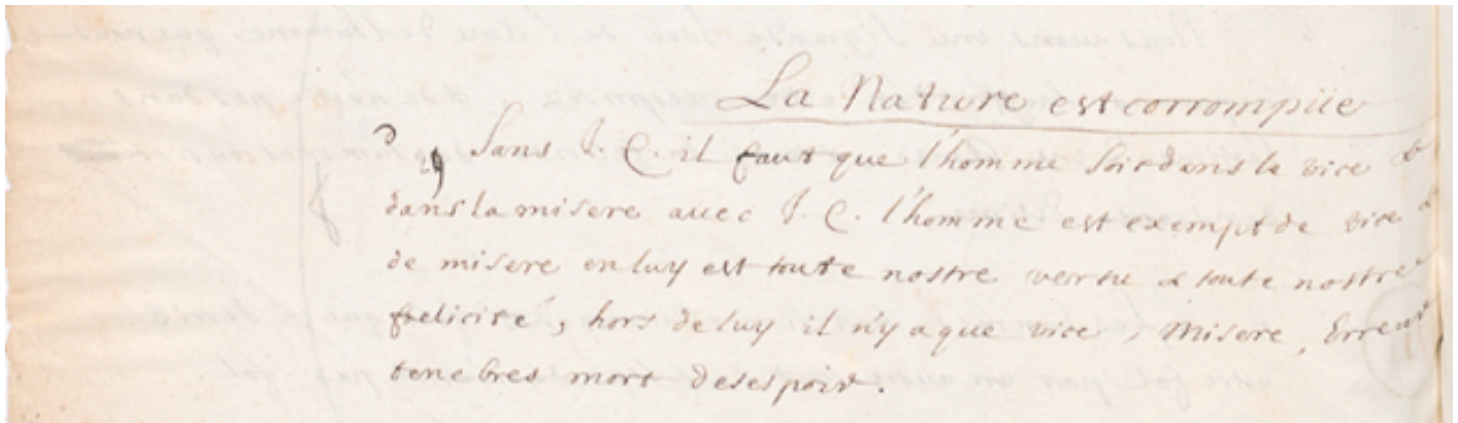 La Nature est corrompüe
Sans J. C. il faut que l'homme soit dans le vice &
dans la misere avec J. C. l'homme est exempt de vice &
de misere en luy est toute nostre vertu & toute nostre
felicité, hors de luy il n'y a que vice, Misere, Erreur
tenebres mort desespoir.